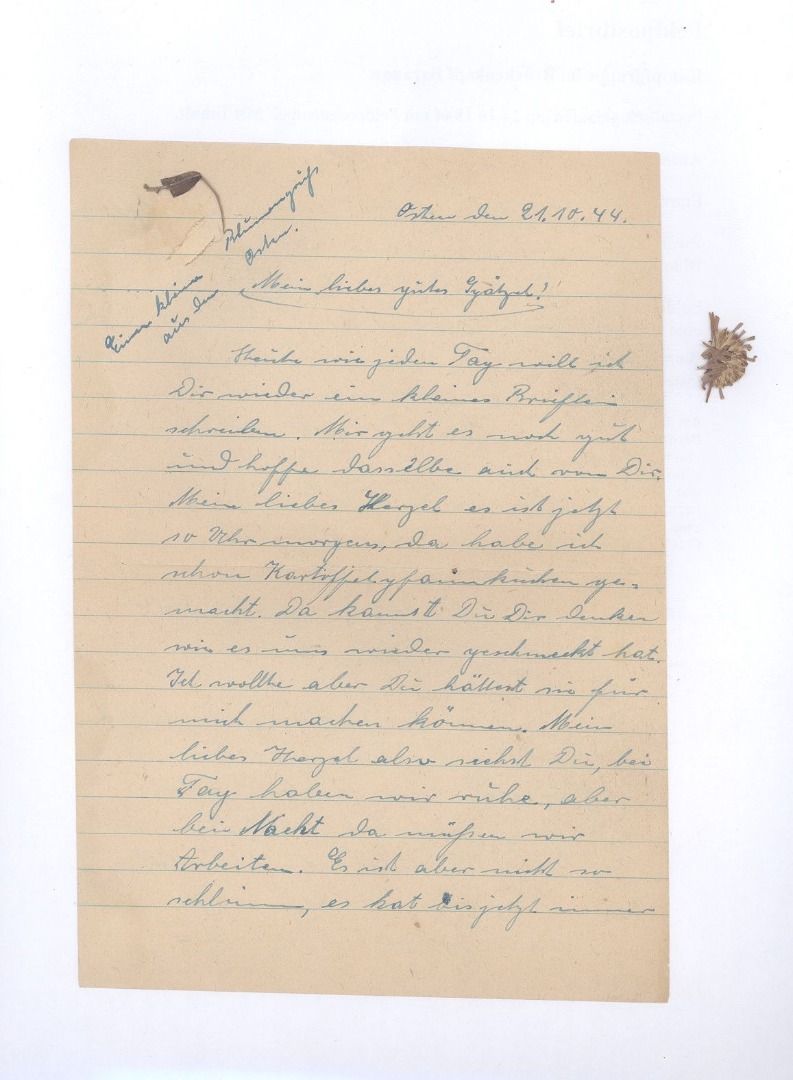 Osten den 21.10.44.
Einen kleinen Blumengruß
aus dem Osten.
Mein liebes gutes
Heute wie jeden Tag will ich
Dir wieder ein kleines Brieflein
schreiben. Mir geht es noch gut
und hoffe dasselbe auch von Dir.
Mein liebes Herzel es ist jetzt
10 Uhr morgens, da habe ich
schon Kartoffelpfannkuchen ge-
macht. Da kannst Du Dir denken
wie es uns wieder geschmeckt hat.
Ich wollte aber Du hättest sie für
mich machen können. Mein
liebes Herzel also siehst Du, bei
Tag haben wir ruhe, aber
bei Nacht da müßen wir
Arbeiten. Es ist aber nicht so
schlimm, es hat bis jetzt immer